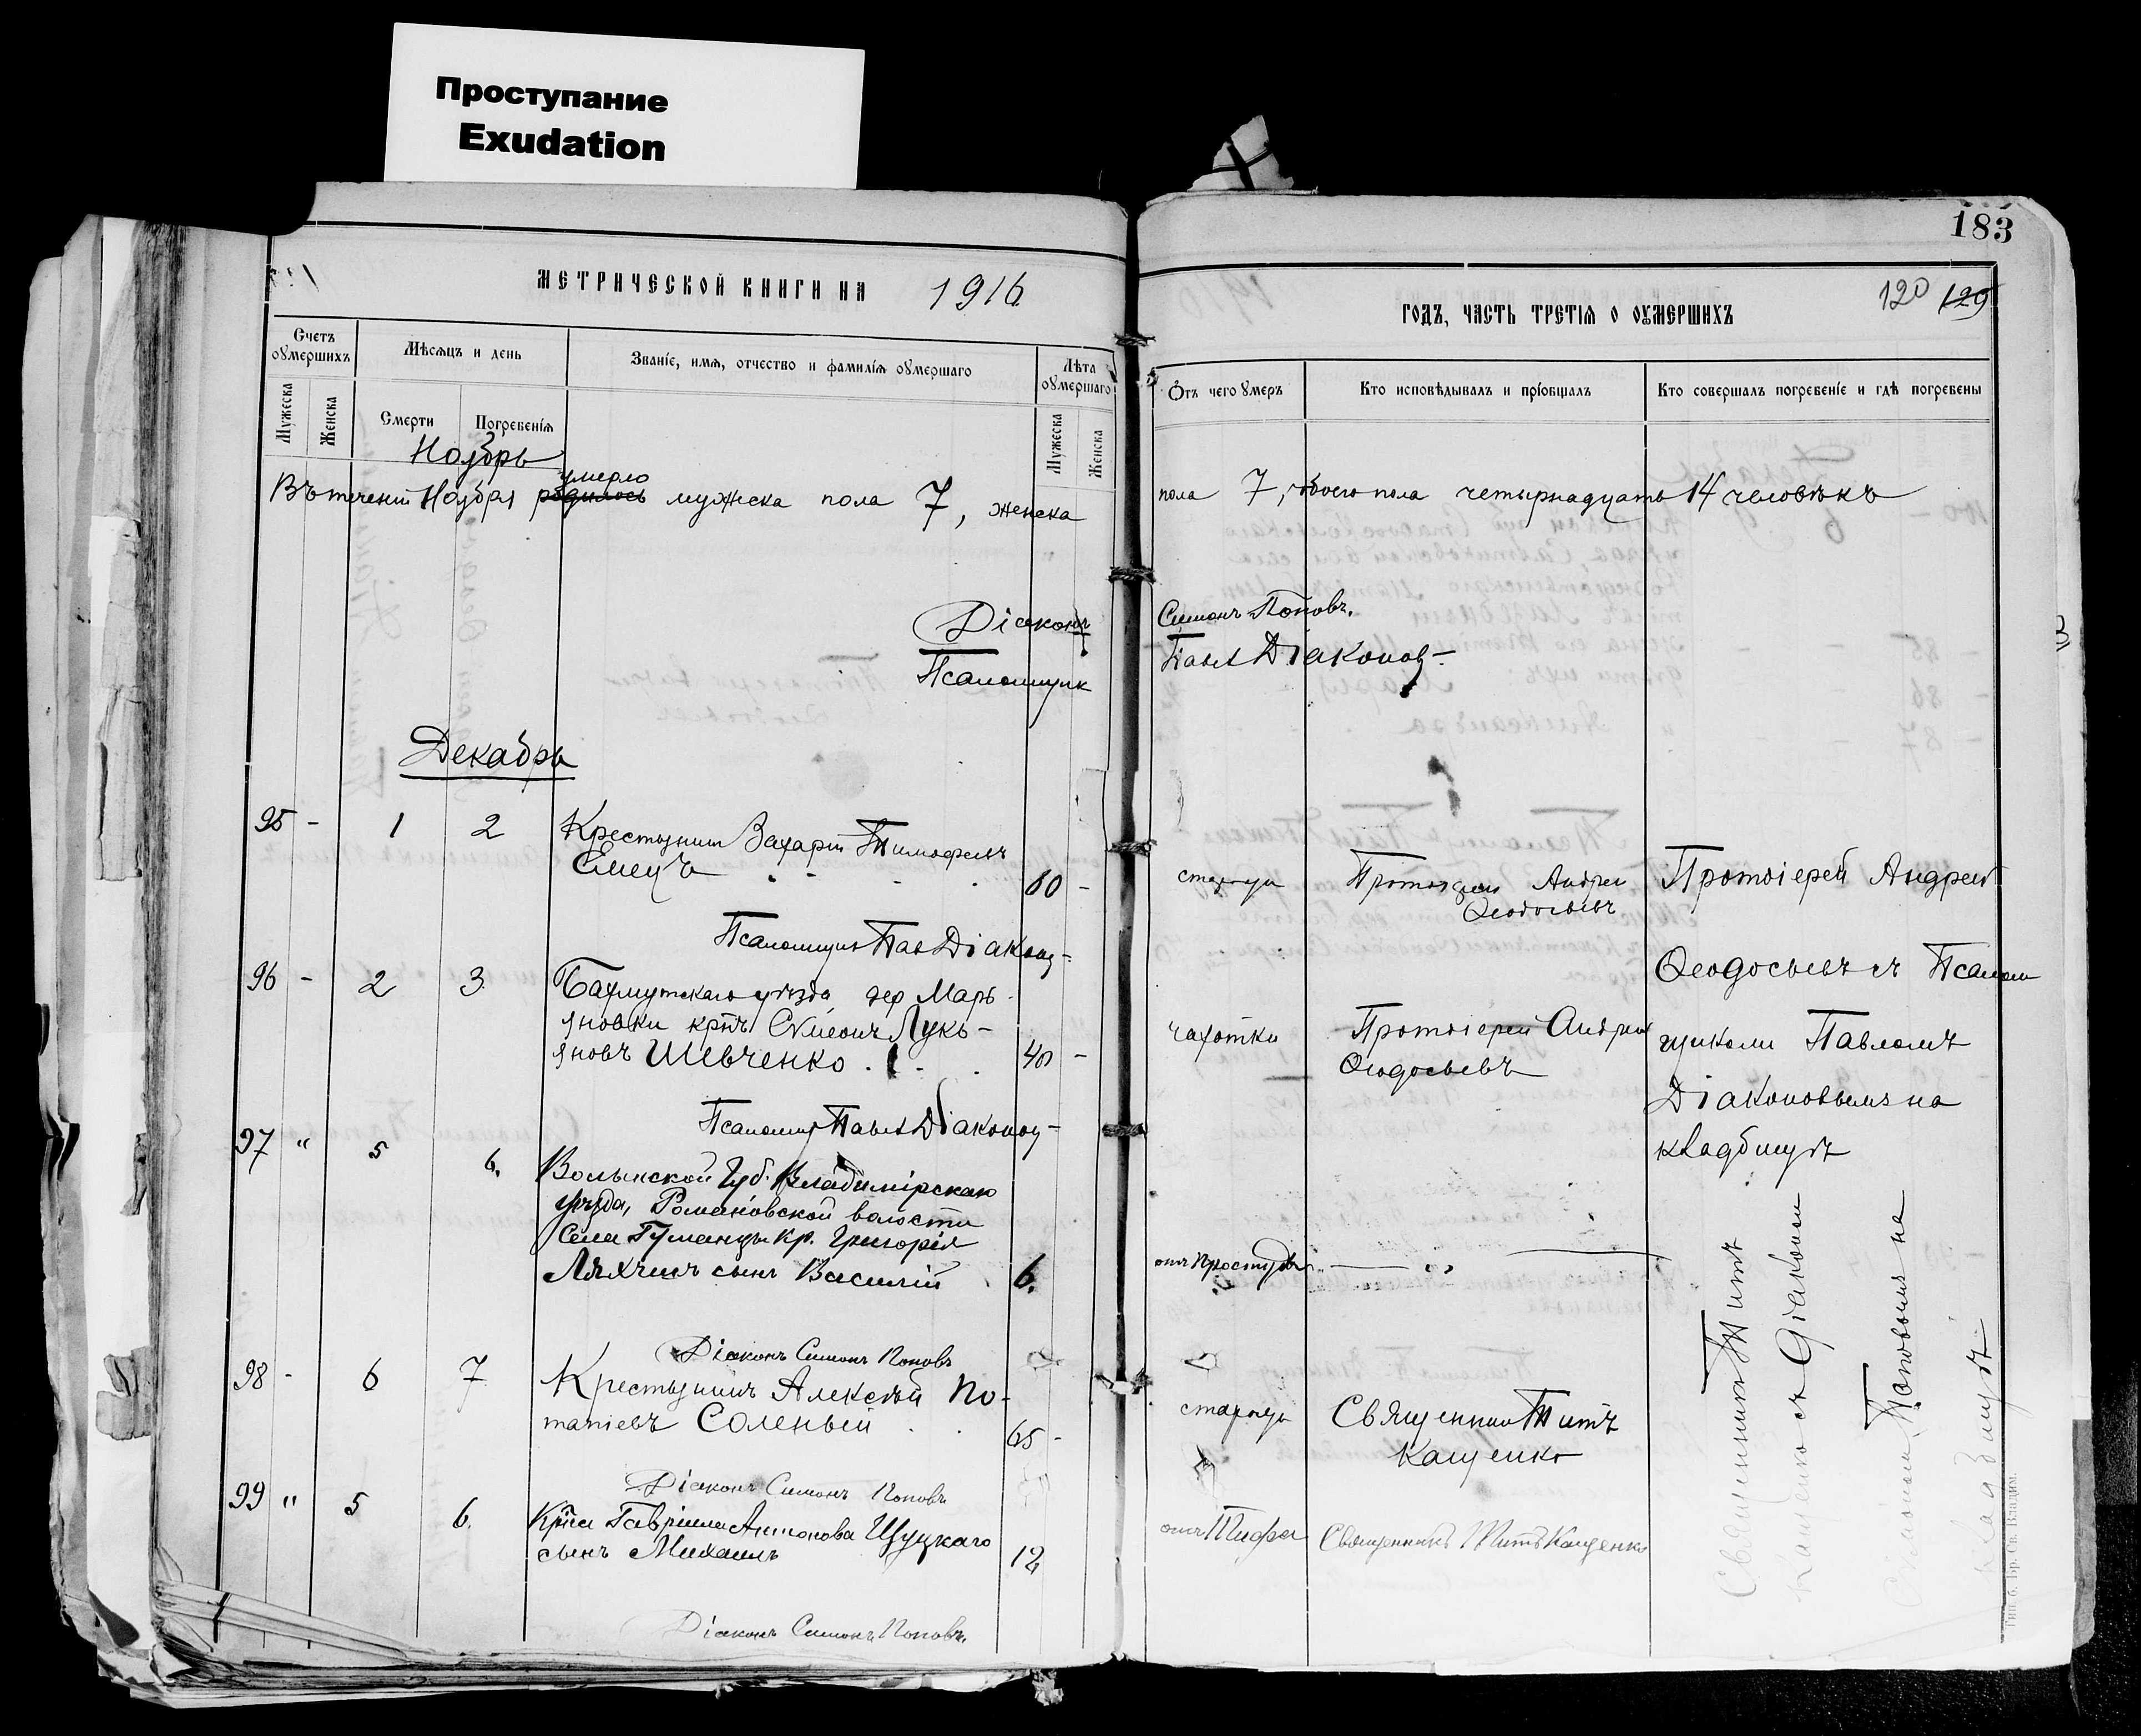 Проступание
Exudation
183
МЕТРИЧЕСКОЙ КНИГИ НА 1916
ГОДЪ, ЧАСТЬ ТРЕТІЯ О ОУМЕРШИХЪ
120 129
Счетъ оумершихъ
Мѣсяцъ и день
Званіе, имя, отчество и фамилія оумершаго
Лѣта оумершаго
Мужеска
Женска
Смерти
Погребенія
Мужеска
Женска
Отъ чего умеръ
Кто исповѣдывалъ и пріобщалъ
Кто совершалъ погребеніе и гдѣ погребены
Ноябрь
умерло
Въ теченіи Ноября родилось мужска пола 7, женска
пола 7, обоего пола четырнадцать 14 человѣкъ
Діаконъ Симонъ Поповъ.
Псаломщик Павел Діаконов
Декабрь
95 - 1 2 Крестьянин Захарій Тимофеевъ
Емецъ 80 -
старости
Протоіерей Андрей
Феодосьевъ
Протоіерей Андрей
Псаломщик Пав Діаконов
Феодосьевъ съ Псалом
96 - 2 3 Бахмутскаго уѣзда дер Марь-
яновки кр̃нъ Симеонъ Лукь-
яновъ Шевченко . . 40 -
чахотки
Протоіерей Андрей
Феодосьевъ
щикомъ Павломъ
Діаконовымъ на
кладбищѣ
Псаломщ Павел Діаконов
97 " 5 6. Волынской Губ. Владимірскаго
уѣзда, Романовской волости
Села Туманцы кр. Григорія
сынъ Василій 6.
отъ Простуды
— „ —
Діаконъ Симонъ Поповъ
98 - 6 7 Крестьянинъ Алексѣй По-
тапіевъ Соленый . . 65 -
старости
Священник Титъ
Кащенко
Діаконъ Симонъ Поповъ
99 " 5 6. Кр̃на Гавріила Антонова Щуцкаго
сынъ Михаилъ 12
отъ Тифа
Священникъ Титъ Кащенко
Діаконъ Симонъ Поповъ.
Священникъ Титъ
Кащенко съ Діакономъ
Симономъ Поповымъ на
кладбищѣ
Тип. б. Бр. Св. Владим.